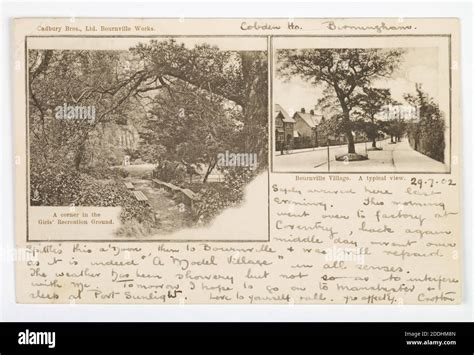 Cadbury Bros., Ltd. Bournville Works.
Cobden Ho. Birmingham.
A corner in the
Girls' Recreation Ground.
Bournville Village. A typical view.
29-7-02
Safely arrived here last
Evening. This morning
went over to factory at
Coventry, back again
middle day went over
this a'noon then to Bournville & was well repaid
as it is indeed "A Model Village" in all senses.
The weather has been showery but not so as to interfere
with me. Tomorrow I hope to go on to Manchester &
sleep at Port Sunlight Love to yourself & all. yrs affectly.
alamy
Image ID: 2DDHM8N
www.alamy.com